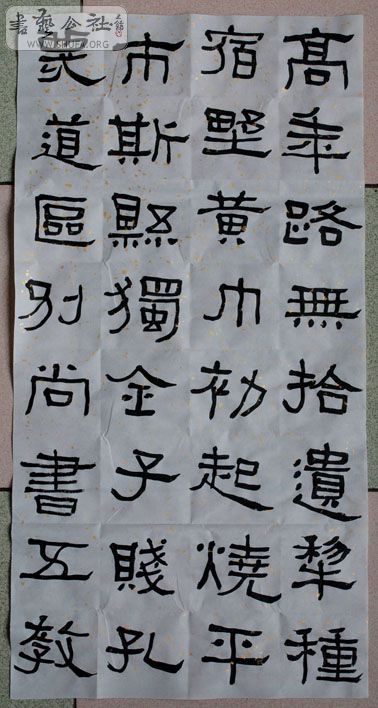 書藝公社
SHUFA.ORG
高年路無拾遺犁種
宿墅黃巾初起燒平
市斯縣獨全子賤孔
道區別尚書五教